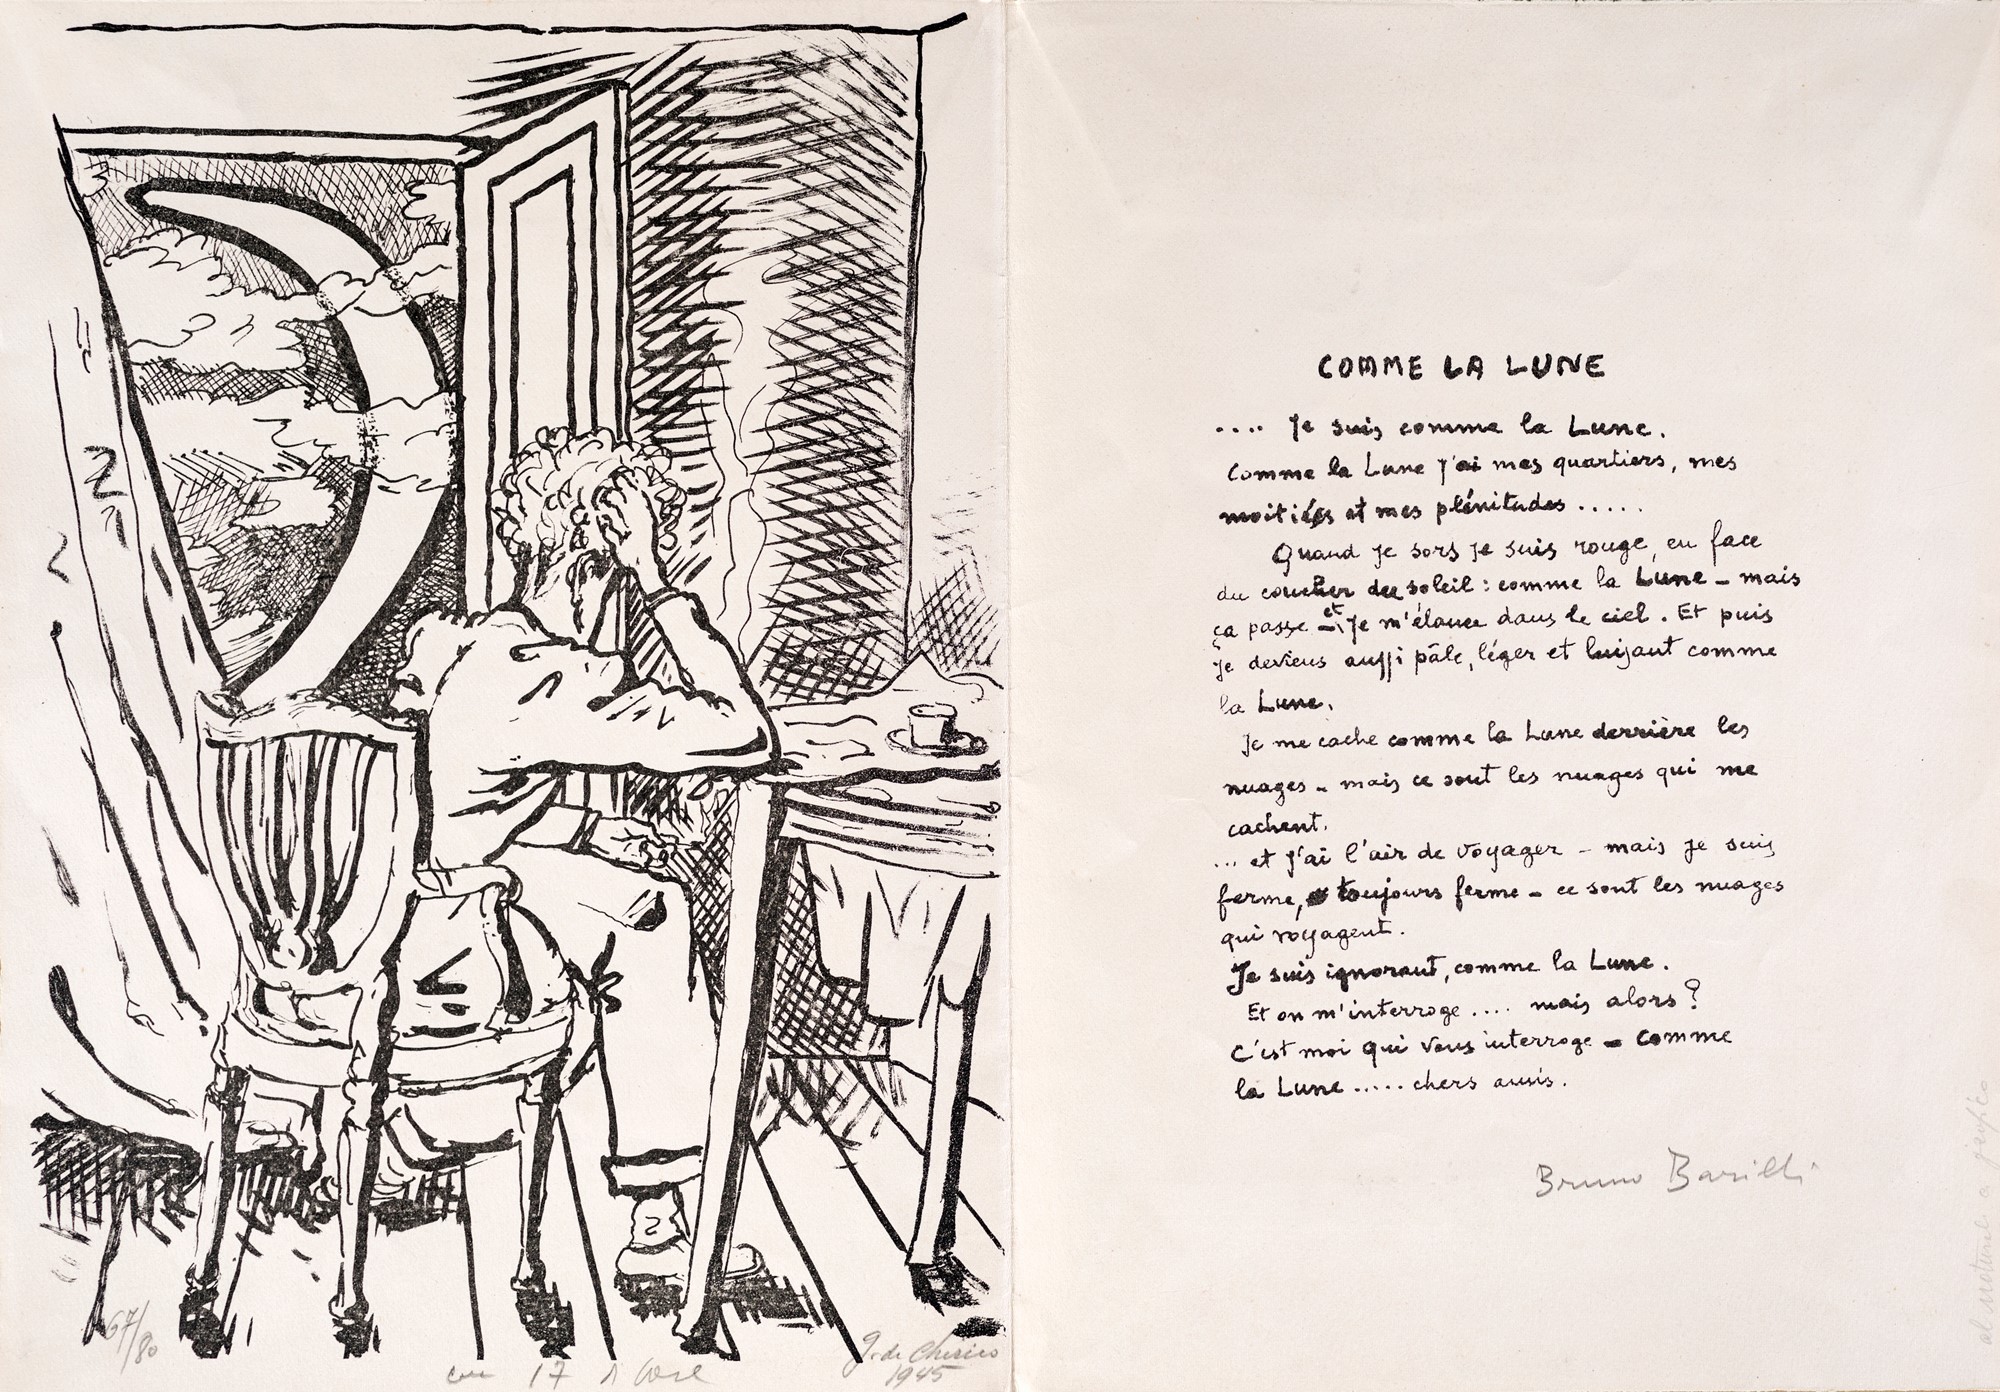 67/80
17
G. de Chirico
1945
COMME LA LUNE
.... Je suis comme la Lune.
Comme la Lune j'ai mes quartiers, mes
moitiés et mes plénitudes .....
Quand je sors je suis rouge, en face
du coucher du soleil : comme la Lune – mais
ça passe – et je m'élance dans le ciel. Et puis
je deviens aussi pâle, léger et luisant comme
la Lune.
Je me cache comme la Lune derrière les
nuages – mais ce sont les nuages qui me
cachent.
... et j'ai l'air de voyager – mais je suis
ferme, toujours ferme – ce sont les nuages
qui voyagent.
Je suis ignorant, comme la Lune.
Et on m'interroge .... mais alors ?
C'est moi qui vous interroge – comme
la Lune ..... chers amis.
Bruno Barilli
al naturale a grafico